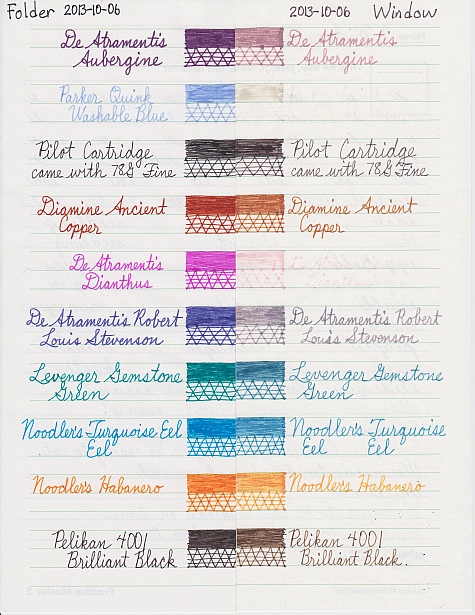 Folder 2013-10-06 2013-10-06 Window
De Atramentis De Atramentis
Aubergine Aubergine
Parker Quink
Washable Blue
Pilot Cartridge Pilot Cartridge
came with 78G Fine came with 78G Fine
Diamine Ancient Diamine Ancient
Copper Copper
De Atramentis De Atramentis
Dianthus Dianthus
De Atramentis Robert De Atramentis Robert
Louis Stevenson Louis Stevenson
Levenger Gemstone Levenger Gemstone
Green Green
Noodler's Turquoise Eel Noodler's Turquoise Eel
Eel Eel Eel
Noodler's Habanero Noodler's Habanero
Pelikan 4001 Pelikan 4001
Brilliant Black Brilliant Black.